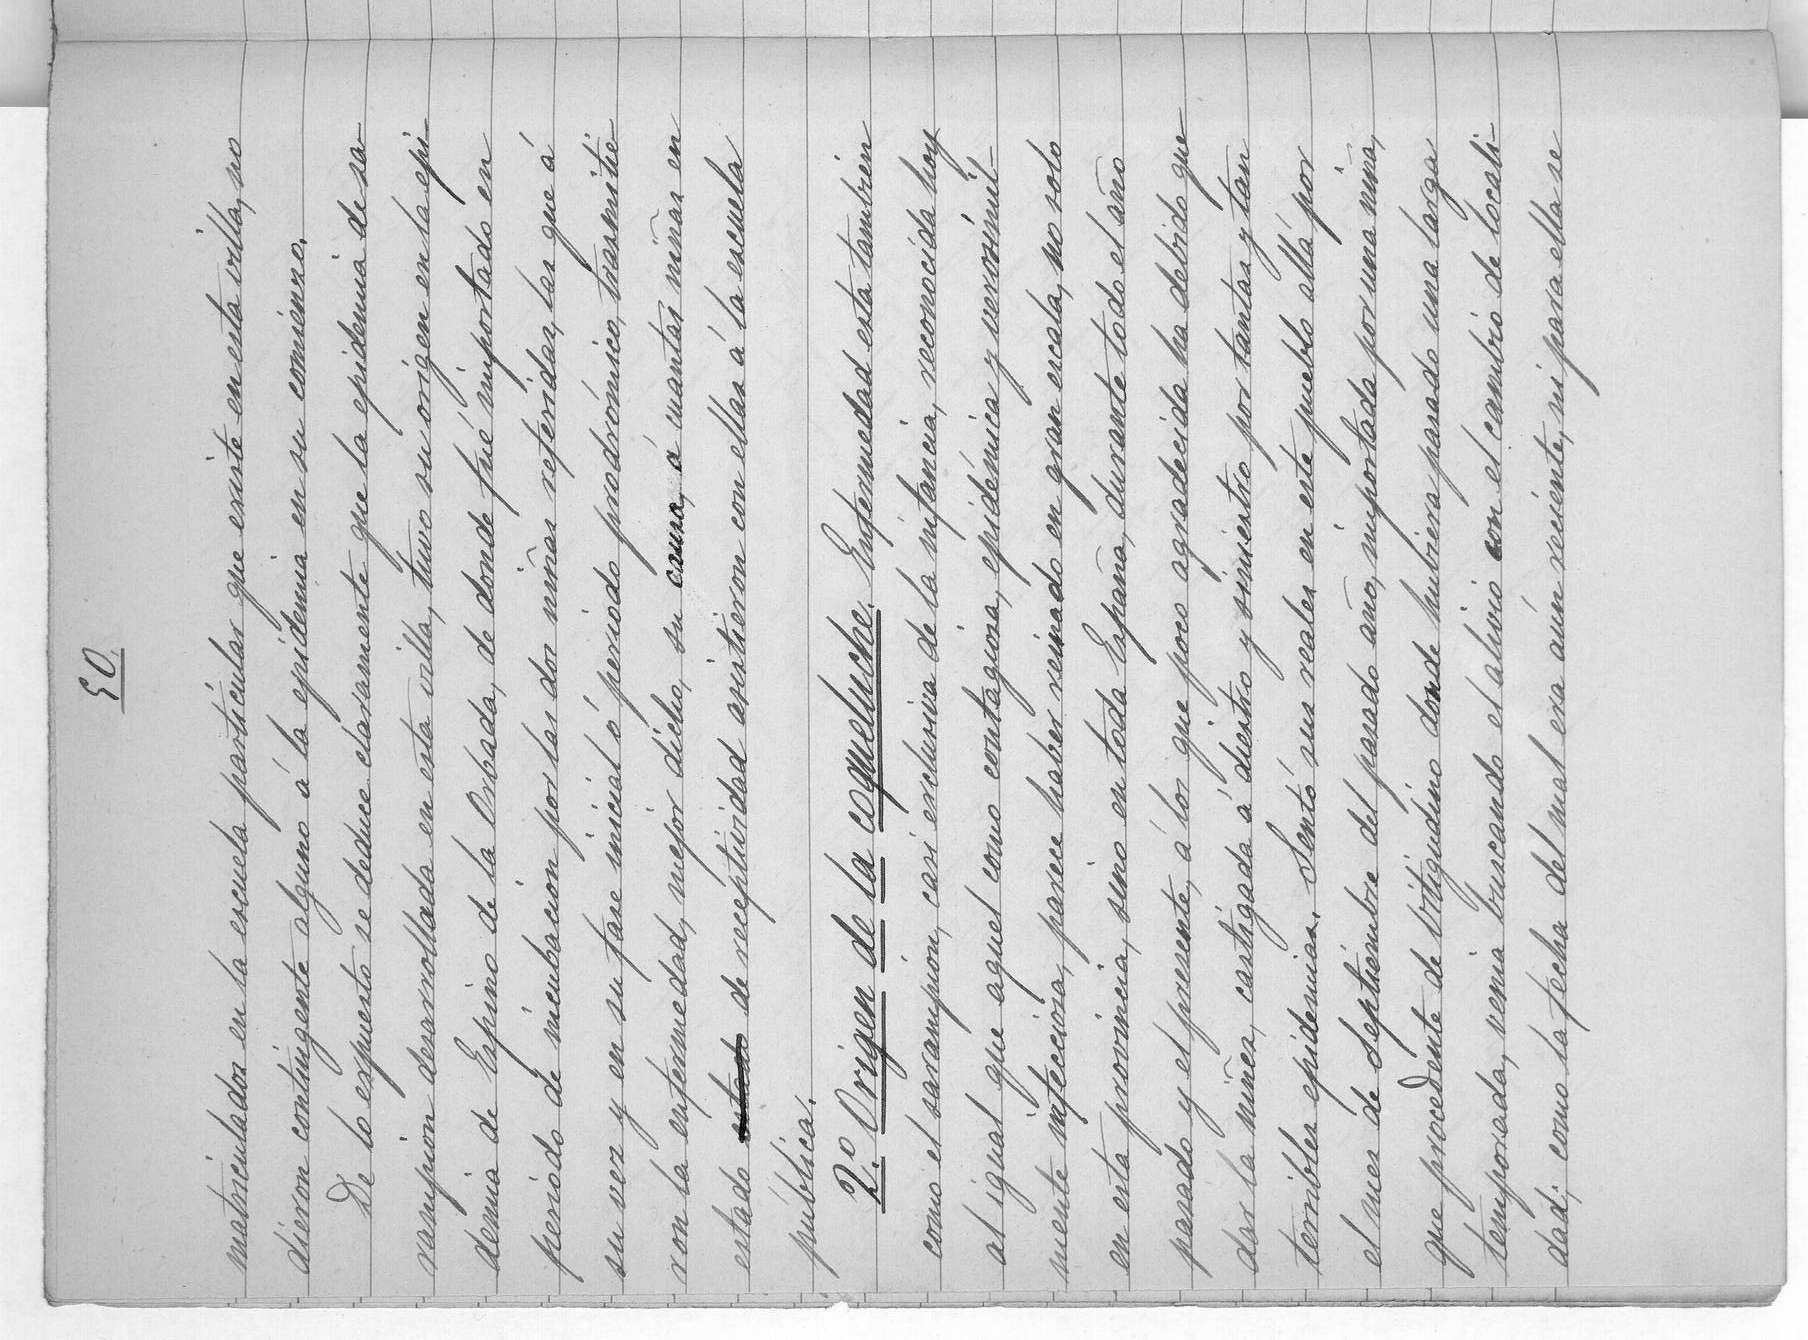 50
matriculados en la escuela particular que existe en esta villa, no
dieron contingente alguno á la epidemia en su comienzo.
De lo expuesto se deduce claramente que la epidemia de sa-
rampion desarrollada en esta villa, tuvo su origen en la epi-
demia de Espino de la Orbada, de donde fué importado en
periodo de incubacion por las dos niñas referidas, las que á
su vez y en su fase inicial ó periodo prodrómico, trasmitie-
ron la enfermedad, mejor dicho, su causa, á cuantas niñas en
estado estado de receptividad asistieron con ellas á la escuela
pública.
2.º Origen de la coqueluche. Enfermedad esta tambien
como el sarampion, casi exclusiva de la infancia, reconocida hoy
al igual que aquel como contagiosa, epidémica y verosimil-
mente infecciosa, parece haber reinado en gran escala, no solo
en esta provincia, sino en toda España, durante todo el año
pasado y el presente, á los que poco agradecida ha debido que-
dar la niñez, castigada á diestro y siniestro por tantas y tan
terribles epidemias. Sentó sus reales en este pueblo allá por
el mes de Septiembre del pasado año, importada por una niña,
que procedente de Vitigudino donde hubiera pasado una larga
temporada, venia buscando el alivio con el cambio de locali-
dad; como la fecha del mal era aún reciente, ni para ella se